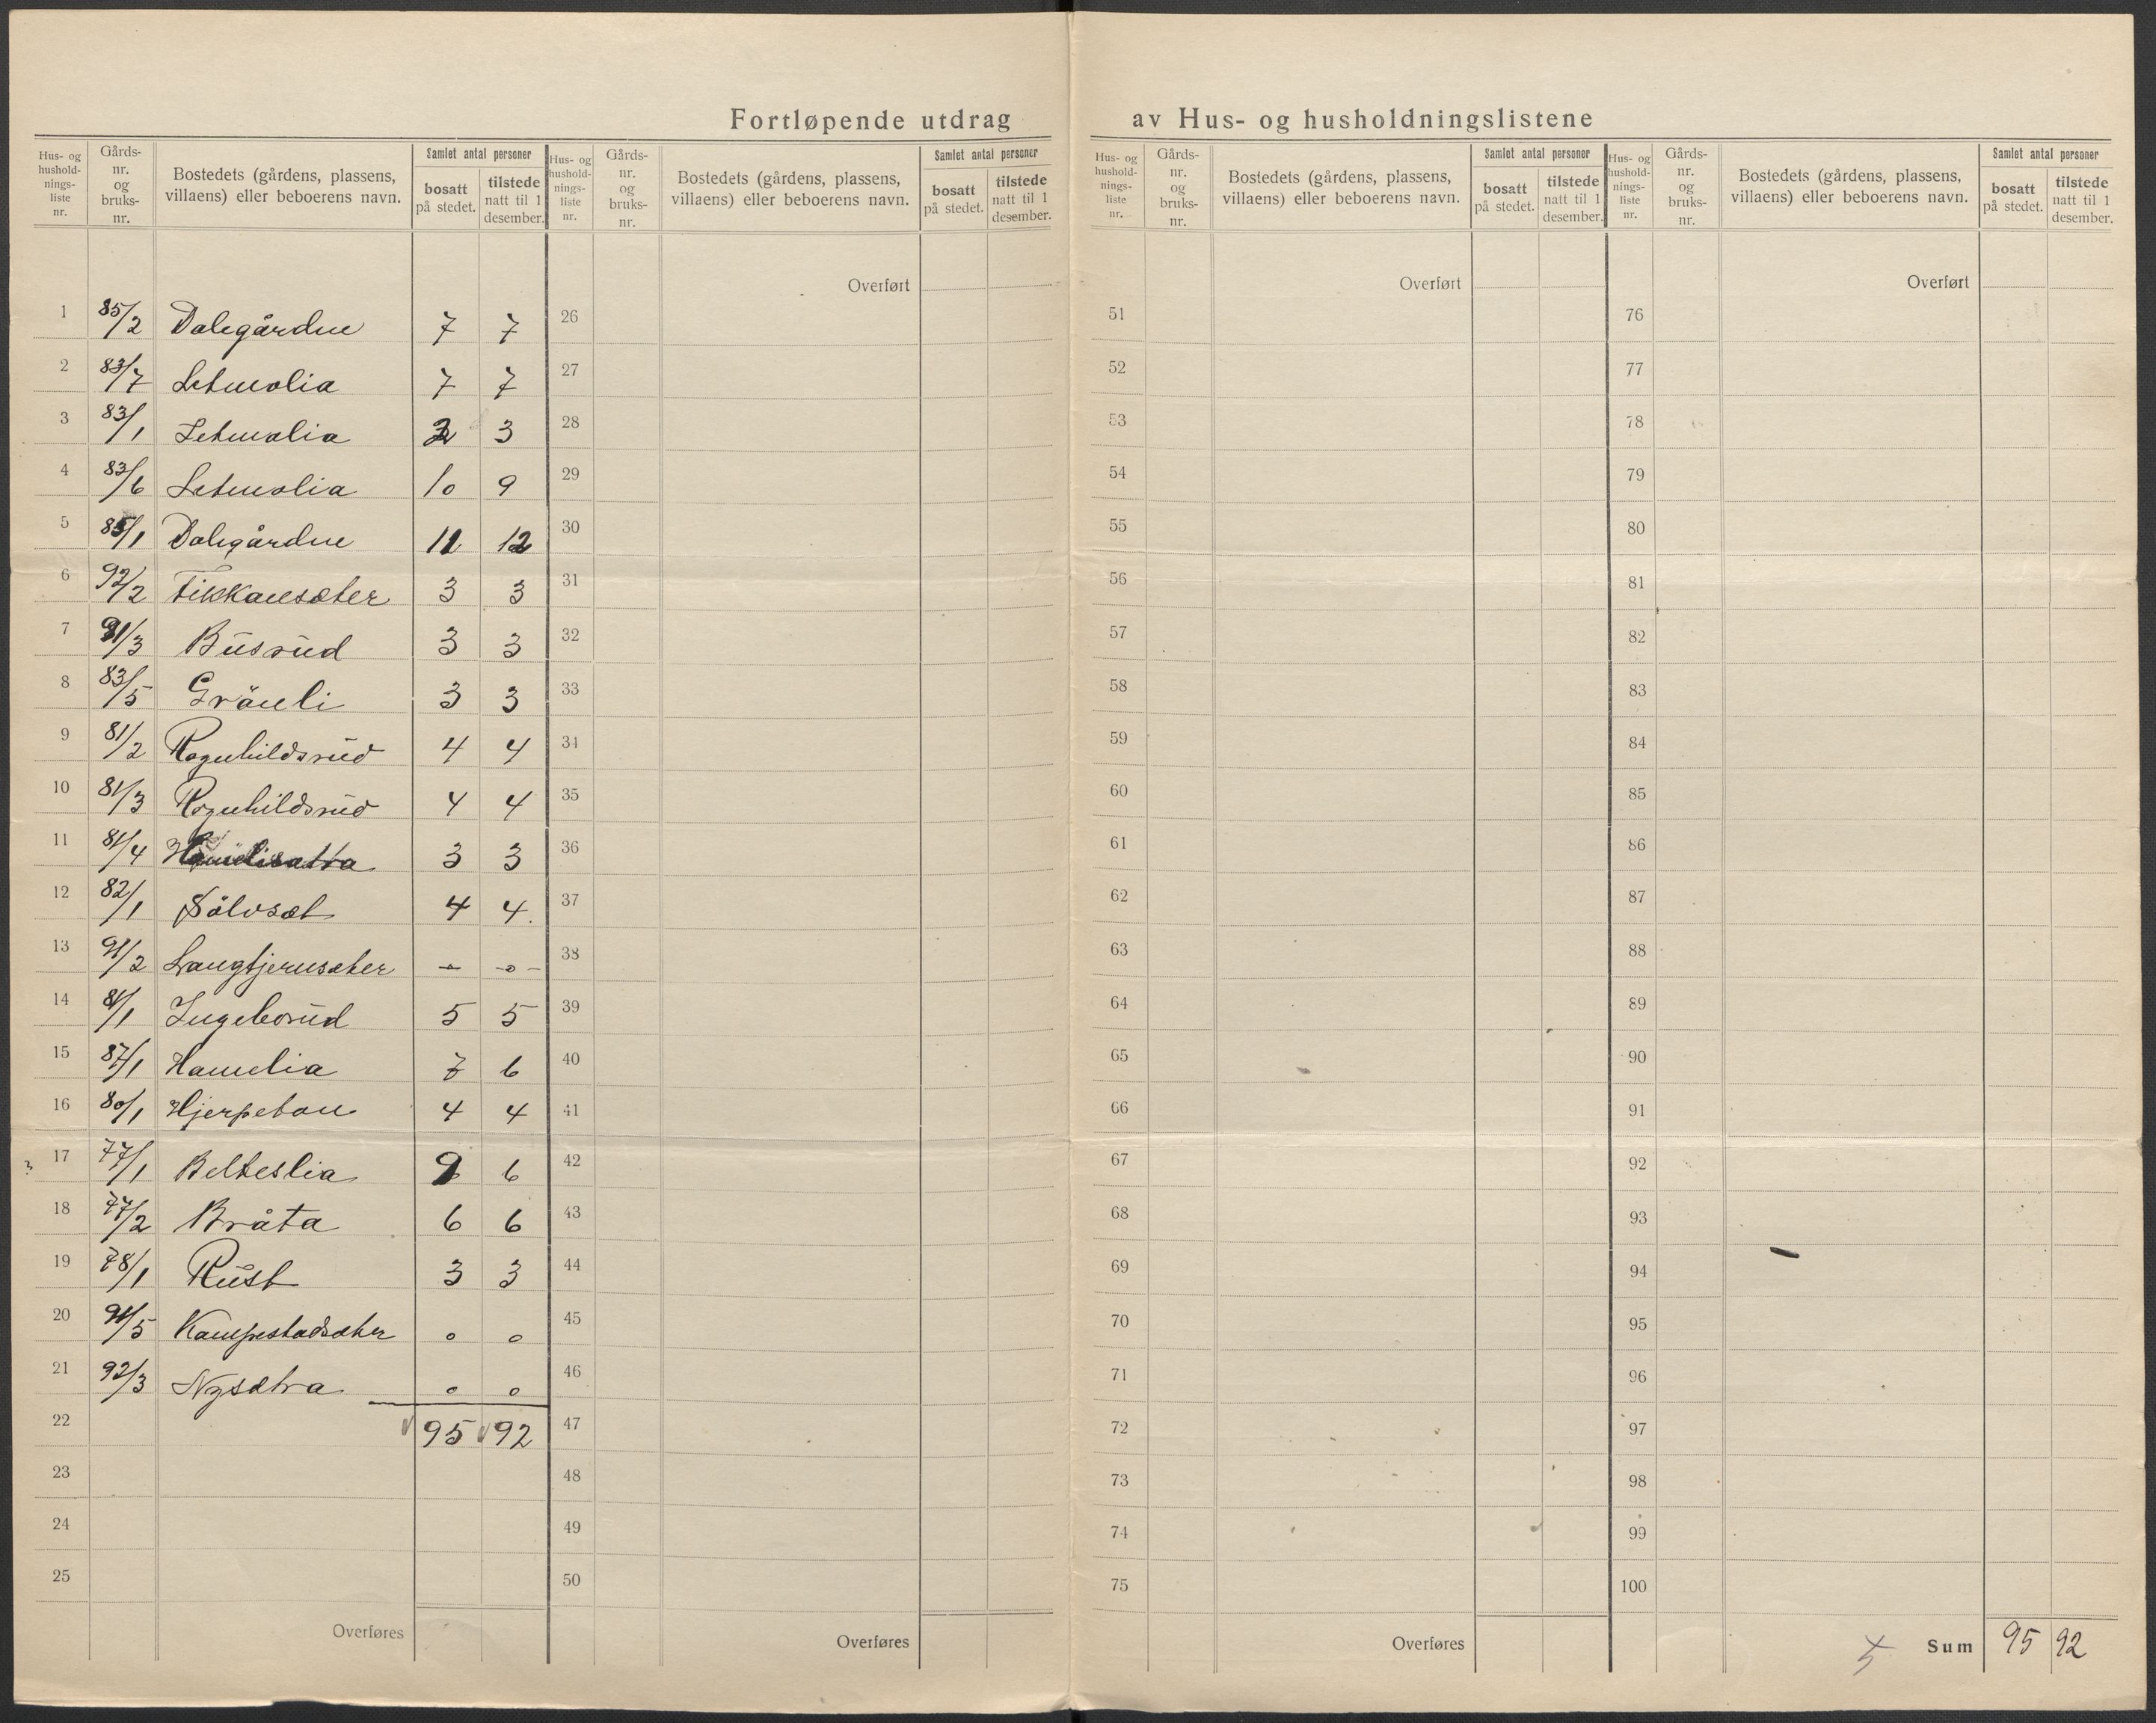 Fortløpende utdrag av Hus- og husholdningslistene
Hus- og hushold-nings-liste nr. Gårds-nr. og bruks-nr. Bostedets (gårdens, plassens, villaens) eller beboerens navn. Samlet antal personer bosatt på stedet. tilstede natt til 1 desember.
Hus- og hushold-nings-liste nr. Gårds-nr. og bruks-nr. Bostedets (gårdens, plassens, villaens) eller beboerens navn. Samlet antal personer bosatt på stedet. tilstede natt til 1 desember.
Hus- og hushold-nings-liste nr. Gårds-nr. og bruks-nr. Bostedets (gårdens, plassens, villaens) eller beboerens navn. Samlet antal personer bosatt på stedet. tilstede natt til 1 desember.
Hus- og hushold-nings-liste nr. Gårds-nr. og bruks-nr. Bostedets (gårdens, plassens, villaens) eller beboerens navn. Samlet antal personer bosatt på stedet. tilstede natt til 1 desember.
Overført Overført Overført
1 85/2 Dalegårdne 7 7 26 51 76
2 83/7 Letmolia 7 7 27 52 77
3 83/1 Letmolia 3 28 53 78
4 83/6 Letmolia 10 9 29 54 79
5 85/1 Dalegårdne 11 12 30 55 80
6 92/2 Fikkansæter 3 3 31 56 81
7 91/3 Busrud 3 3 32 57 82
8 83/5 Grönli 3 3 33 58 83
9 81/2 Ragnhildsrud 4 4 34 59 84
10 81/3 Ragnhildsrud 4 4 35 60 85
11 81/4 3 3 36 61 86
12 82/1 Sålvsæt 4 4 37 62 87
13 91/2 Langtjernsæter - -o- 38 63 88
14 81/1 Ingeborud 5 5 39 64 89
15 87/1 Hamelia 7 6 40 65 90
16 80/1 Hjerpetan 4 4 41 66 91
17 77/1 Belteslia 9 6 42 67 92
18 77/2 Bråta 6 6 43 68 93
19 78/1 Rust 3 3 44 69 94
20 91/5 Kampestadsæter o o 45 70 95
21 92/3 Nysætra o o 46 71 96
22 95 92 47 72 97
23 48 73 98
24 49 74 99
25 50 75 100
Overføres Overføres Overføres Sum 95 92